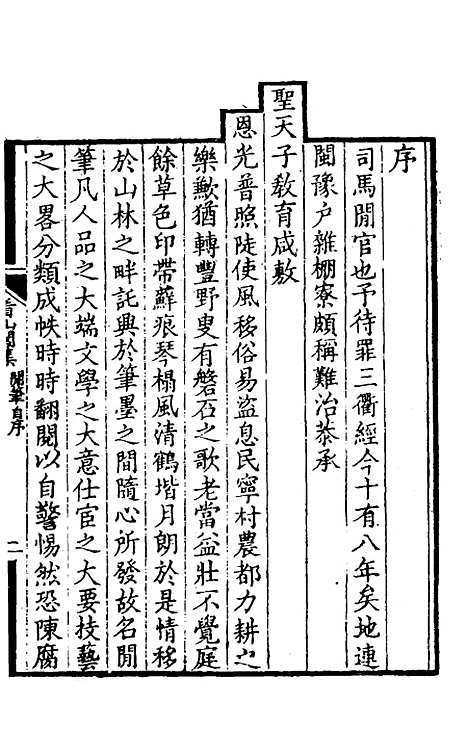 序
司馬閒官也予待罪三衢經今十有八年矣地連
閩豫戶雜棚寮頗稱難治恭承
聖天子敎育咸敷
恩光普照陡使風移俗易盜息民寧村農都力耕之
樂歉猶轉豐野叟有磐石之歌老當益壯不覺庭
餘草色印帶蘚痕琴榻風清鶴堦月朗於是情移
於山林之畔託興於筆墨之間隨心所發故名閒
筆凡人品之大端文學之大意仕宦之大要技藝
之大畧分類成帙時時翻閱以自警惕然恐陳腐
看山閣集 閒筆自序 一